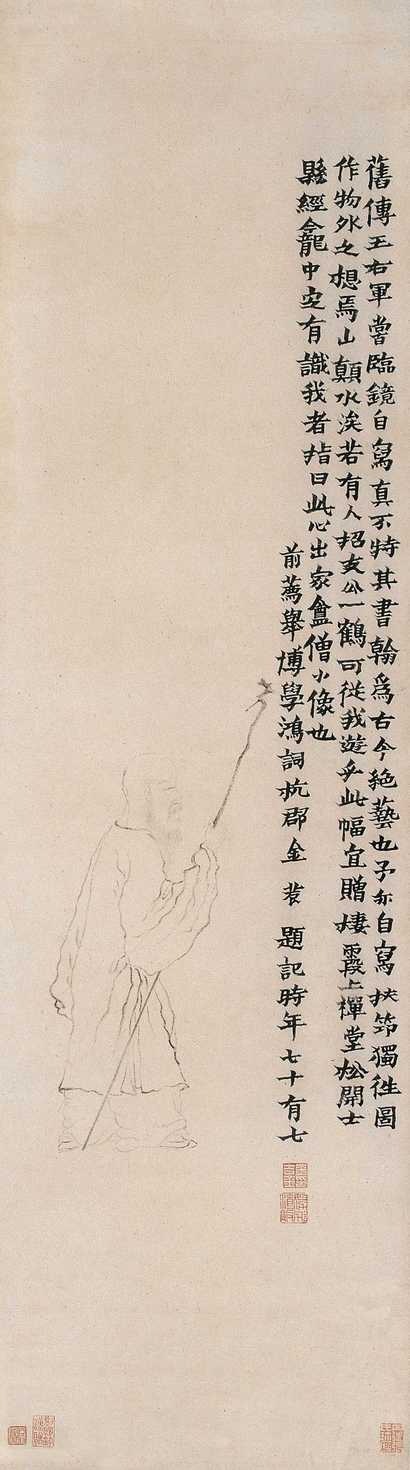 舊傳王右軍嘗臨鏡自寫真不特其書翰爲古今絶藝也予亦自寫扶筇獨往圖
作物外之想焉山顛水涘若有人招支公一鶴可從我遊乎此幅宜贈棲霞上禪堂松開士
縣經龕中定有識我者指曰此心出家盦僧小像也
前薦舉博學鴻詞杭郡金農題記時年七十有七